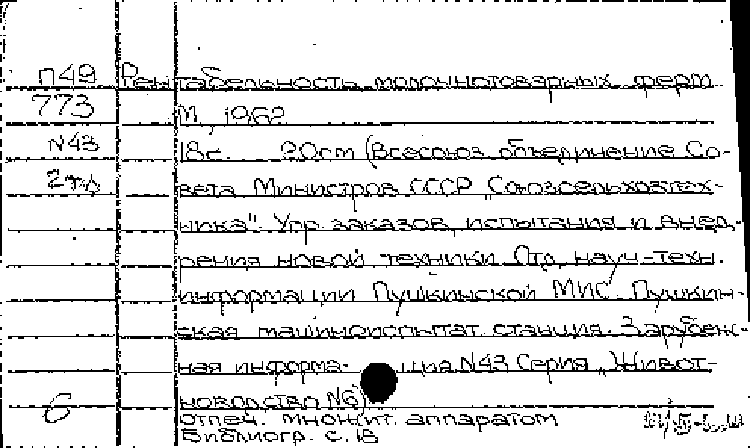 П49 Рентабельность молочнотоварных ферм
773 М, 1962
N43 18с. 20см (Всесоюз. объединение Со-
вета Министров СССР „Союзсельхозтех-
ника". Упр. заказов, испытания и внед-
рения новой техники. Отд. науч.-техн.
информации Пушкинской МИС. Пушкин-
ская машиноиспытат. станция. Зарубеж-
ная информация N43 Серия „Живот-
новодство N6)
6 отпеч. множит. аппаратом
Библиогр. с. 18